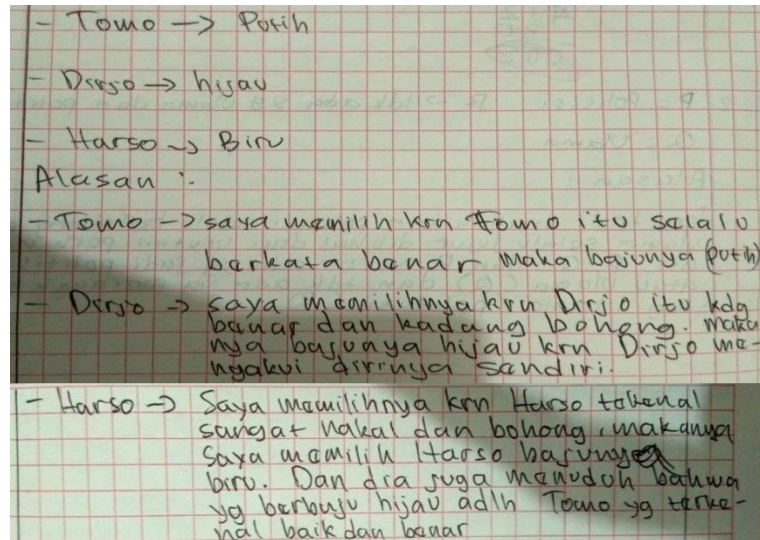 - Tomo -> Putih
- Dirjo -> hijau
- Harso -> Biru
Alasan :
- Tomo -> saya memilih krn Tomo itu selalu
berkata benar maka bajunya (putih)
- Dirjo -> saya memilihnya krn Dirjo itu kdg
benar dan kadang bohong. maka
nya bajunya hijau krn Dirjo me-
ngakui dirinya sendiri.
- Harso -> Saya memilihnya krn Harso tekenal
sangat nakal dan bohong, makanya
saya memilih Harso bajunya
biru. Dan dia juga menuduh bahwa
yg berbuju hijau adlh Tomo yg terke-
nal baik dan benar